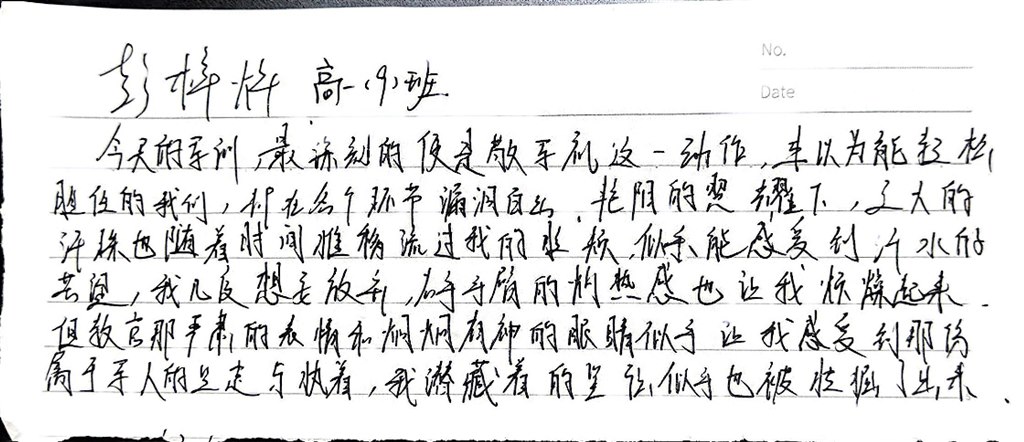 No.
彭梓烨 高一(9)班
Date
今天的军训,最深刻的便是敬军礼这一动作,本以为能轻松
胜任的我们,却在各个环节漏洞百出。艳阳的照耀下,豆大的
汗珠也随着时间推移流过我的脸颊,似乎能感受到汗水的
苦涩,我几度想要放弃,右手手臂的灼热感也让我烦燥起来。
但教官那严肃的表情和炯炯有神的眼睛似乎让我感受到那份
属于军人的坚定与执着,我潜藏着的坚强似乎也被挖掘了出来。